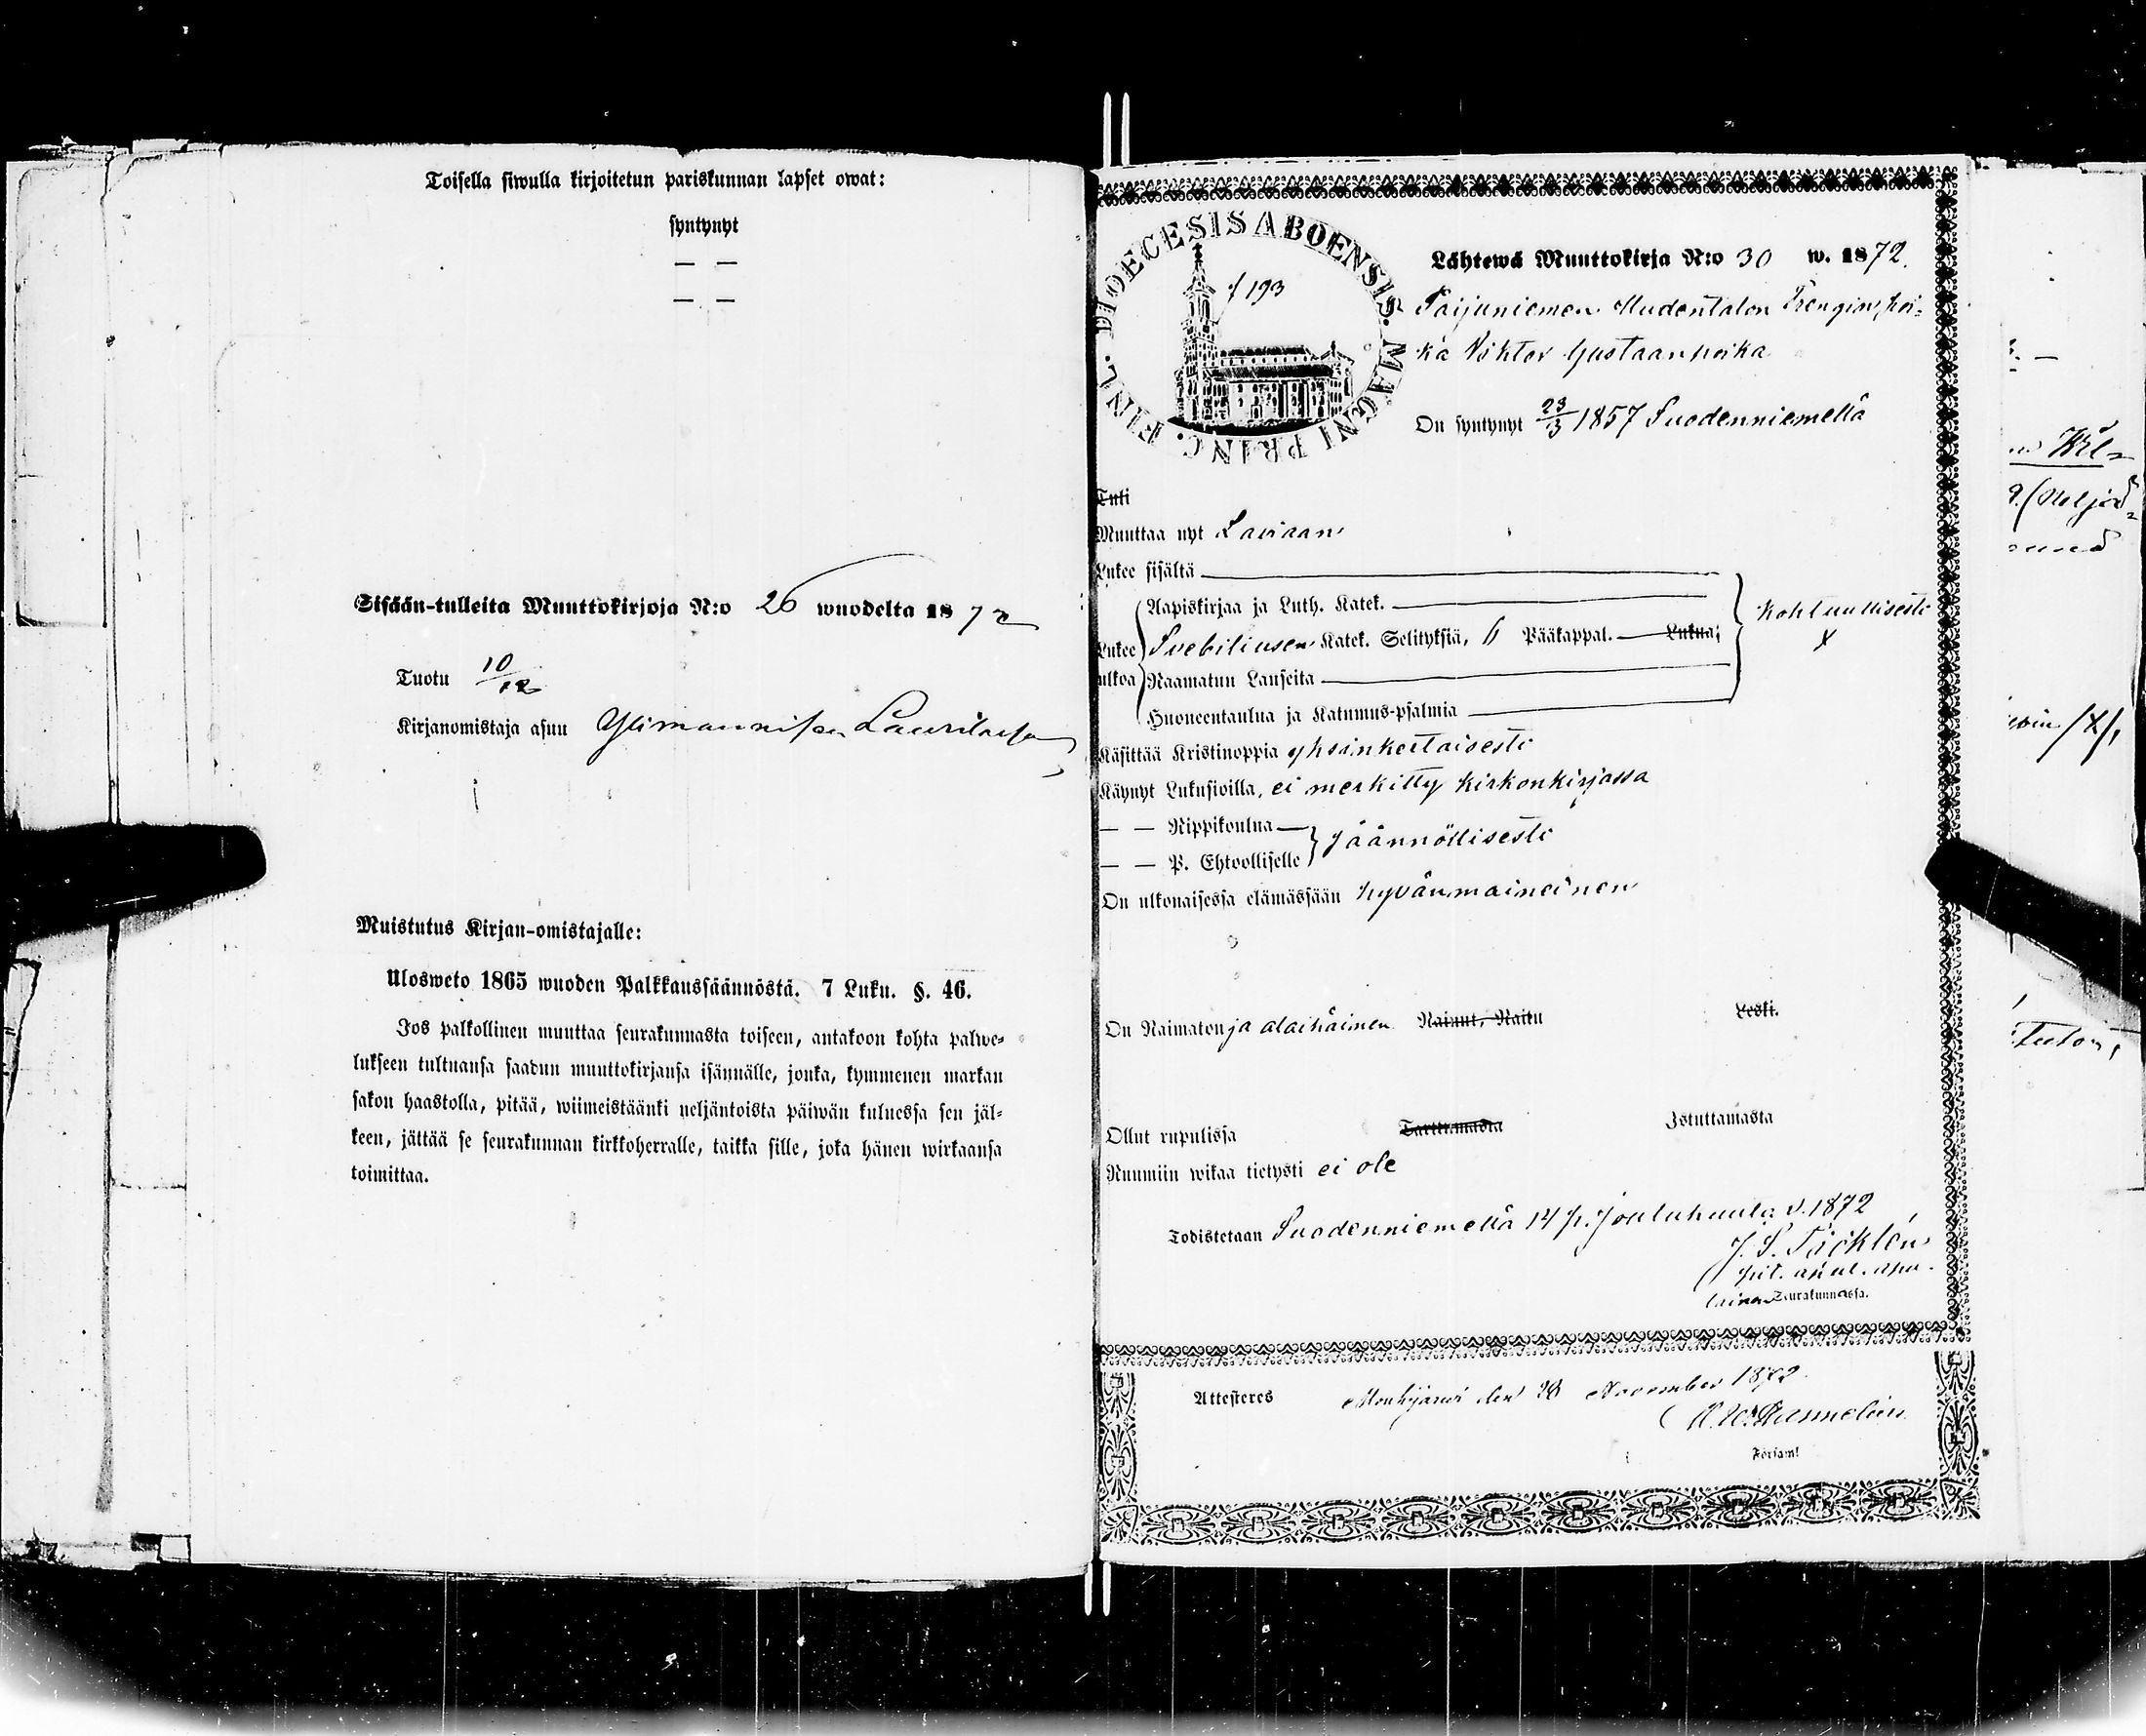 Toisella siwulla kirjoitetun pariskunnan lapset owat:
syntynyt
— —
— —
Sisään-tulleita Muuttokirjoja N:o 26 wuodelta 1872
Tuotu 10/12
Kirjanomistaja asuu Ylimannisen Laurilassa
Muistutus Kirjan-omistajalle:
Ulosweto 1865 wuoden Palkkaussäännöstä. 7 Luku. §. 46.
Jos palkollinen muuttaa seurakunnasta toiseen, antakoon kohta palwe-
lukseen tultuansa saadun muuttokirjansa isännälle, jonka, kymmenen markan
sakon haastolla, pitää, wiimeistäänki neljäntoista päiwän kuluessa sen jäl-
keen, jättää se seurakunnan kirkkoherralle, taikka sille, joka hänen wirkaansa
toimittaa.
DIOECESIS ABOENSIS. MAGNI PRINC. FINL.
f 193
Lähtewä Muuttokirja N:o 30 w. 1872.
Taijuniemen Uudentalon Trengin, poi-
ka Viktor Gustaanpoika
On syntynyt 23/3 1857 Suodenniemellä
Tuli
Muuttaa nyt Laviaan
Lukee sisältä
Aapiskirjaa ja Luth. Katek.
Lukee ulkoa Svebiliusen Katek. Selityksiä, 6 Pääkappal. — Lukua;
kohtuullisesti
x
Raamatun Lauseita
Huoneentaulua ja Katumus-psalmia
Käsittää Kristinoppia yksinkertaisesti
Käynyt Lukusioilla, ei merkitty kirkonkirjassa
— — Rippikoulua —
jäännöllisesti
— — P. Ehtoolliselle
On ulkonaisessa elämässään hyvänmaineinen
On Naimaton ja alaikäinen Nainut, Naitu Leski.
Ollut rupulissa Tarttumasta Istuttamasta
Ruumiin wikaa tietysti ei ole
Todistetaan Suodenniemellä 14 p. Jouluhuuta v. 1872
J. S. Täcklén
pit. apul. apu-
lainen Seurakunnassa.
Attesteres Mouhijärvi den 28 November 1872.
Församl